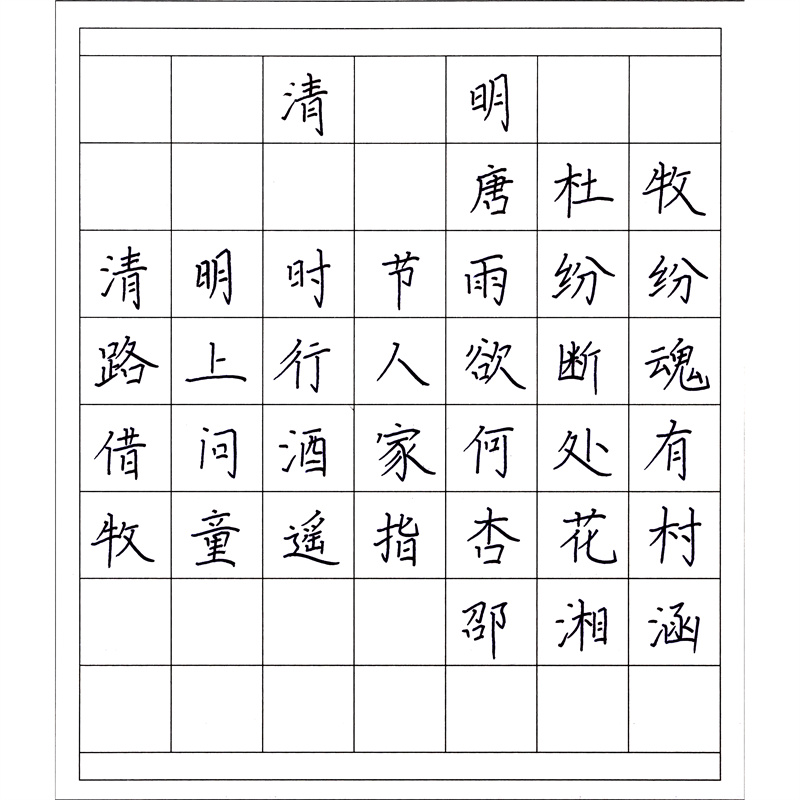 清明
唐杜牧
清明时节雨纷纷
路上行人欲断魂
借问酒家何处有
牧童遥指杏花村
邵湘涵